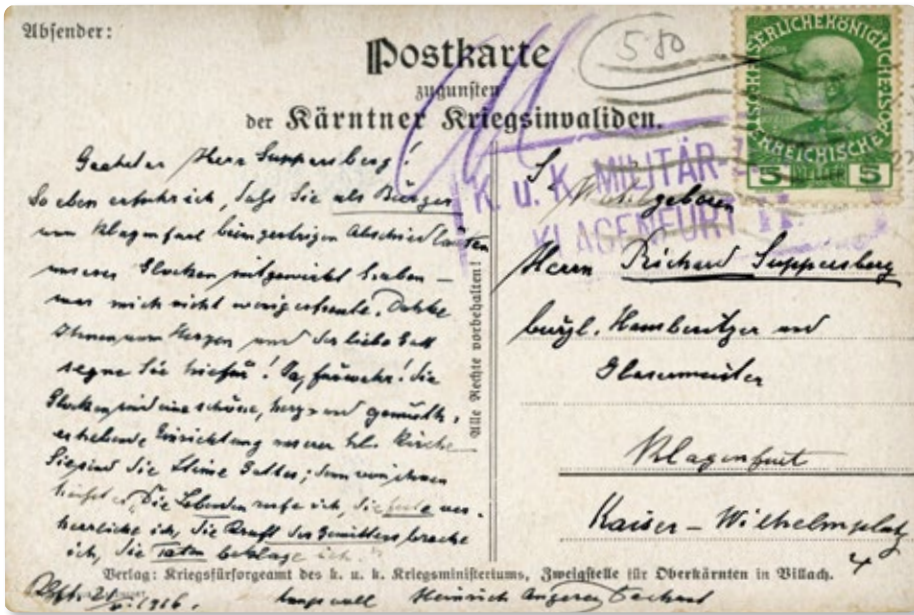 Absender:
Postkarte
zugunsten
der Kärntner Kriegsinvaliden.
580
KAISERLICHE KÖNIGLICHE ÖSTERREICHISCHE POST
5 5
K. u. K. MILITÄR-
KLAGENFURT
Geehrter Herr Suppersberg!
So eben erfuhr ich, daß Sie als Bürger
von Klagenfurt beim gestrigen Abschiedläuten
unserer Glocken mitgewirkt haben –
was mich nicht wenig erfreute. Danke
Ihnen vom Herzen und der liebe Gott
segne Sie hiefür! Ja, fürwahr! die
Glocken sind eine schöne, herz- und gemüth-
erhebende Einrichtung unserer hl. Kirche
Sie sind die Stimme Gottes; denn von ihnen
heißt es „Die Lebenden rufe ich, die Feste ver-
herrliche ich, die Kraft des Gewitters breche
ich, die Toten beklage ich."
1916.
Heinrich
Alle Rechte vorbehalten!
Sr. Wohlgeboren
Herrn Richard Suppersberg
bürgl. Hausbesitzer und
Glasermeister
Klagenfurt
Kaiser-Wilhelmplatz
4
Verlag: Kriegsfürsorgeamt des k. u. k. Kriegsministeriums, Zweigstelle für Oberkärnten in Villach.